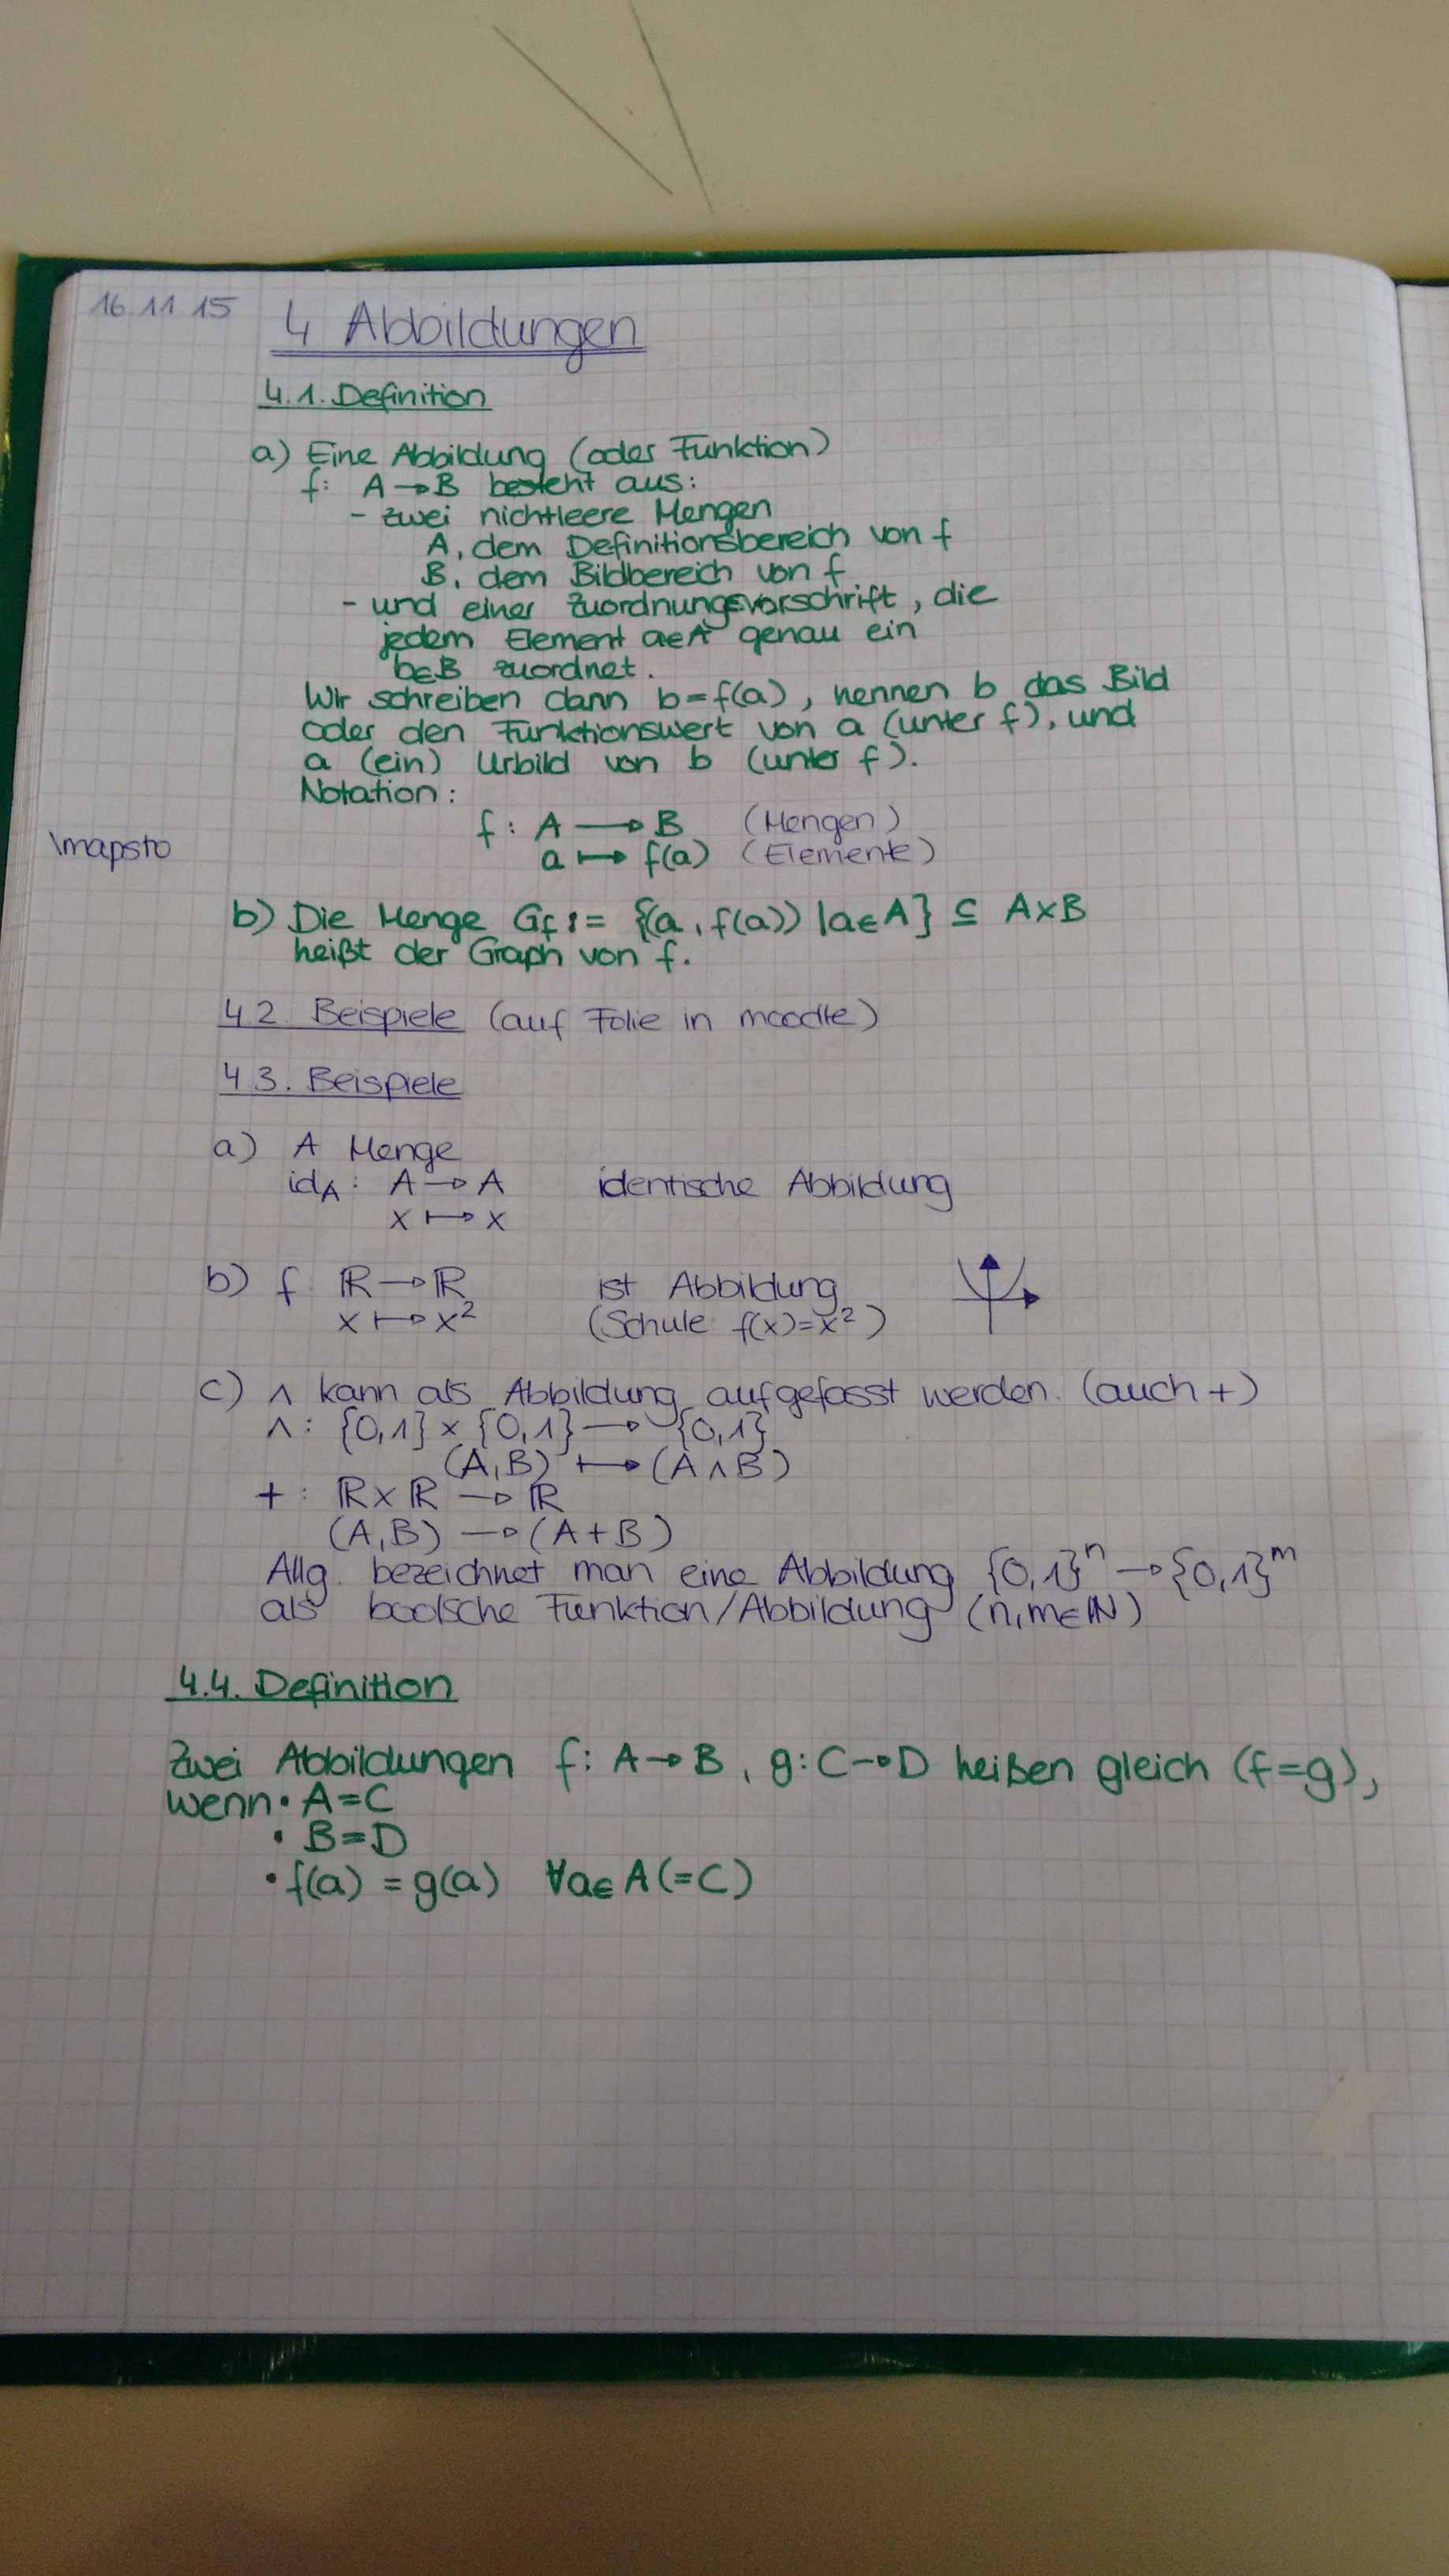 16.11.15
4 Abbildungen
4.1. Definition
a) Eine Abbildung (oder Funktion)
f: A → B besteht aus:
- zwei nichtleere Mengen
A, dem Definitionsbereich von f
B, dem Bildbereich von f
- und einer Zuordnungsvorschrift, die
jedem Element a∈A genau ein
b∈B zuordnet.
Wir schreiben dann b=f(a), nennen b das Bild
oder den Funktionswert von a (unter f), und
a (ein) Urbild von b (unter f).
Notation:
f: A ⟶ B (Mengen)
\mapsto
a ⟼ f(a) (Elemente)
b) Die Menge G_f := {(a, f(a)) | a∈A} ⊆ A×B
heißt der Graph von f.
4.2. Beispiele (auf Folie in moodle)
4.3. Beispiele
a) A Menge
id_A: A → A identische Abbildung
x ↦ x
b) f: ℝ → ℝ ist Abbildung
x ↦ x² (Schule: f(x)=x²)
c) ∧ kann als Abbildung aufgefasst werden. (auch +)
∧: {0,1} × {0,1} → {0,1}
(A,B) ↦ (A∧B)
+: ℝ×ℝ → ℝ
(A,B) → (A+B)
Allg. bezeichnet man eine Abbildung {0,1}ⁿ → {0,1}ᵐ
als boolsche Funktion/Abbildung (n,m∈ℕ)
4.4. Definition
Zwei Abbildungen f: A→B, g: C→D heißen gleich (f=g),
wenn • A=C
• B=D
• f(a) = g(a) ∀a∈A(=C)